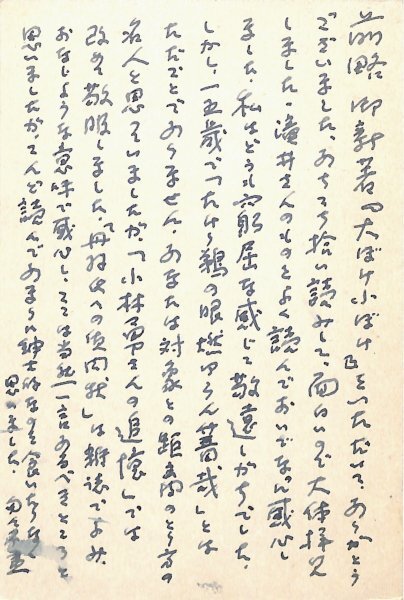 前略 御新著『大ぼけ小ぼけ』をいただいて、ありがとう
ございました。あちこち拾い読みして、面白いので大体拝見
しました。滝井さんのものをよく読んでおいでなのに感心し
ました。私はどうも窮屈な感じで敬遠しがちでした。
しかし、一五歳で「たけり鵜の眼燃ゆらん薔哉」とは
ただごとでありません。あなたは対象との距離のとり方の
名人と思っていましたが、「小林勇さんの追憶」では
改めて敬服しました。「丹羽氏への質問状」は雑誌でよみ、
おなじような意味で感心し、ここは当然一言あるべきところと
思いましたが、こんど読んであまりに紳士的なのを食いたりなく
思いました。